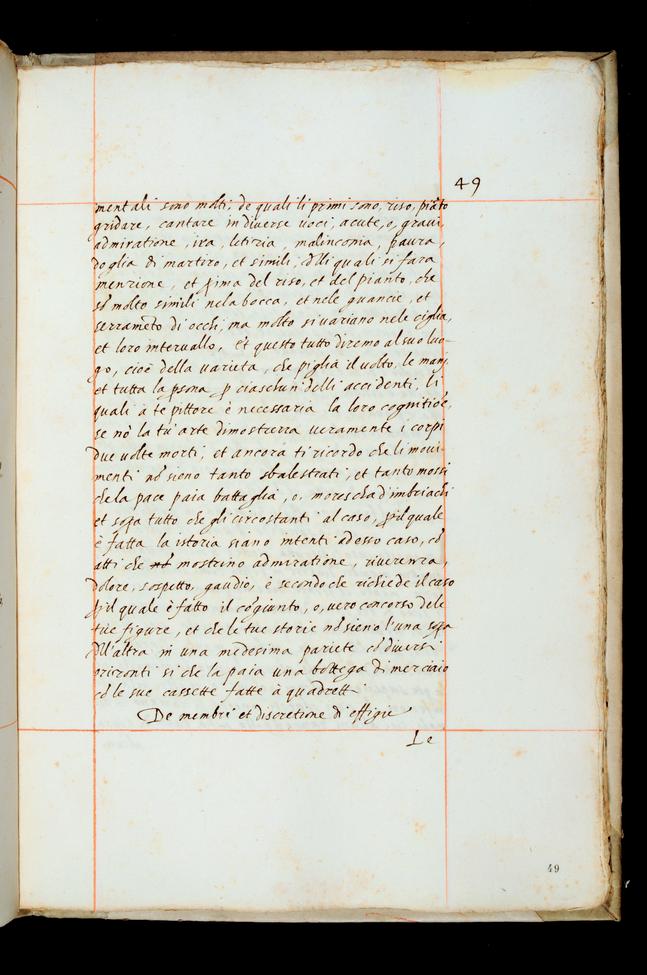 49
mentali sono molti, de quali li primi sono, riso, piãto
gridare, cantare in diverse voci, acute, o, gravi,
admiratione, ira, letizia, malinconia, paura,
doglia di martiro, et simili, dlli quali si fara
menzione, et p̃ima del riso, et del pianto, che
sõ molto simili nela bocca, et nele guancie, et
serramẽto di occhi, ma molto si variano nele ciglia,
et loro intervallo, et questo tutto diremo al suo luo-
go, cioè della varieta, che piglia il volto, le mani
et tutta la p̃sona p̱ ciaschun delli accidenti, li
quali à te pittore è necessaria la loro cognitiõe,
se nõ la tu' arte dimosterra veramente i corpi
due volte morti, et ancora ti ricordo che li movi-
menti nõ sieno tanto sbalestrati, et tanto mossi
che la pace paia battaglia, o, morescha d'imbriachi
et sop̃a tutto che gli circostanti al caso, p̱ il quale
è fatta la istoria siano intenti à desso caso, cõ
atti che mostrino admiratione, riverenza,
dolore, sospetto, gaudio, è secondo che richiede il caso
p̱ il quale è fatto il cõgiunto, o, vero concorso dele
tue figure, et che le tue storie nõ sieno l'una sop̃a
dll'altra in una medesima pariete cõ diversi
orizonti si che la paia una bottega di merciaio
cõ le sue cassette fatte à quadretti
De membri et discretione di effigie
Le
49